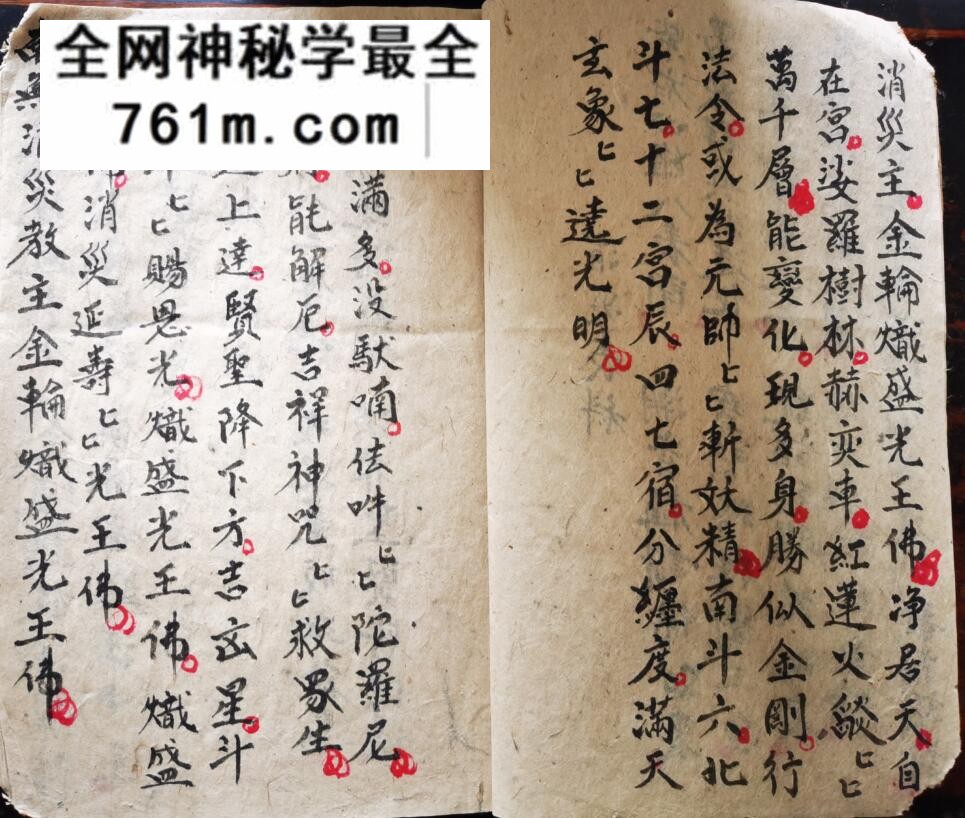 全网神秘学最全
761m.com
消災主金輪熾盛光王佛净居天自
在宮娑羅樹林赫奕車紅蓮火燄匕匕
萬千層能變化現多身勝似金剛行
法令或為元帥匕匕斬妖精南斗六北
斗七十二宮辰四七宿分纏度滿天
玄象匕匕逹光明
滿多没馱喃佉吽匕匕陀羅尼
能解厄吉祥神咒匕匕救眾生
上達賢聖降下方吉凶星斗
匕匕賜恩光熾盛光王佛熾盛
消災延壽匕匕光王佛
災教主金輪熾盛光王佛